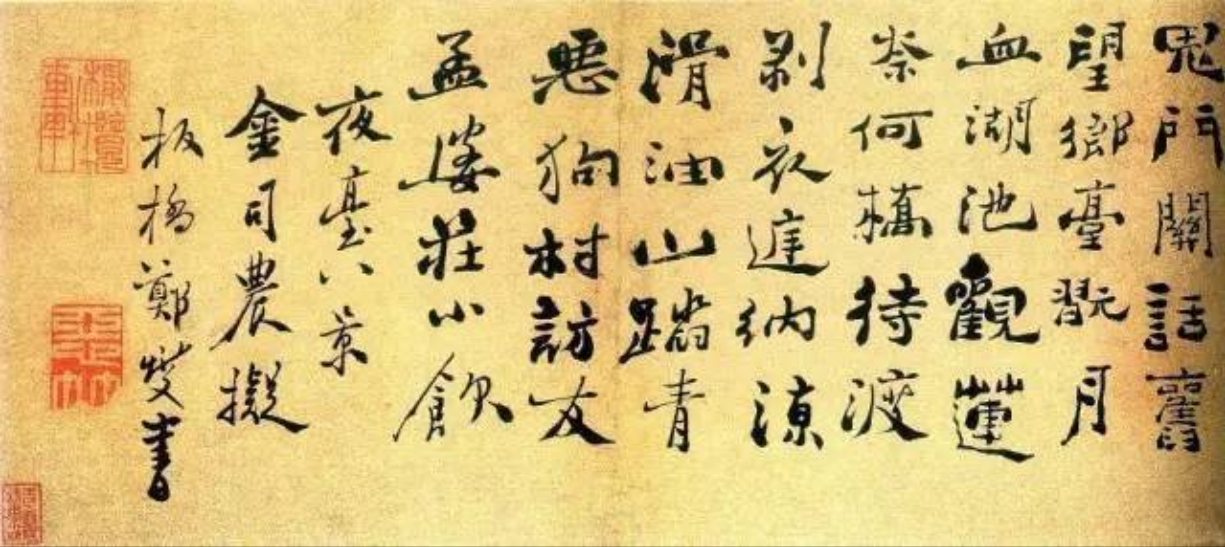 鬼門關話舊
望鄉臺翫月
血湖池觀蓮
柰何橋待渡
剥衣進納涼
滑油山踏青
惡狗村訪友
孟婆莊小飲
夜臺八景
金司農擬
板橋鄭燮書